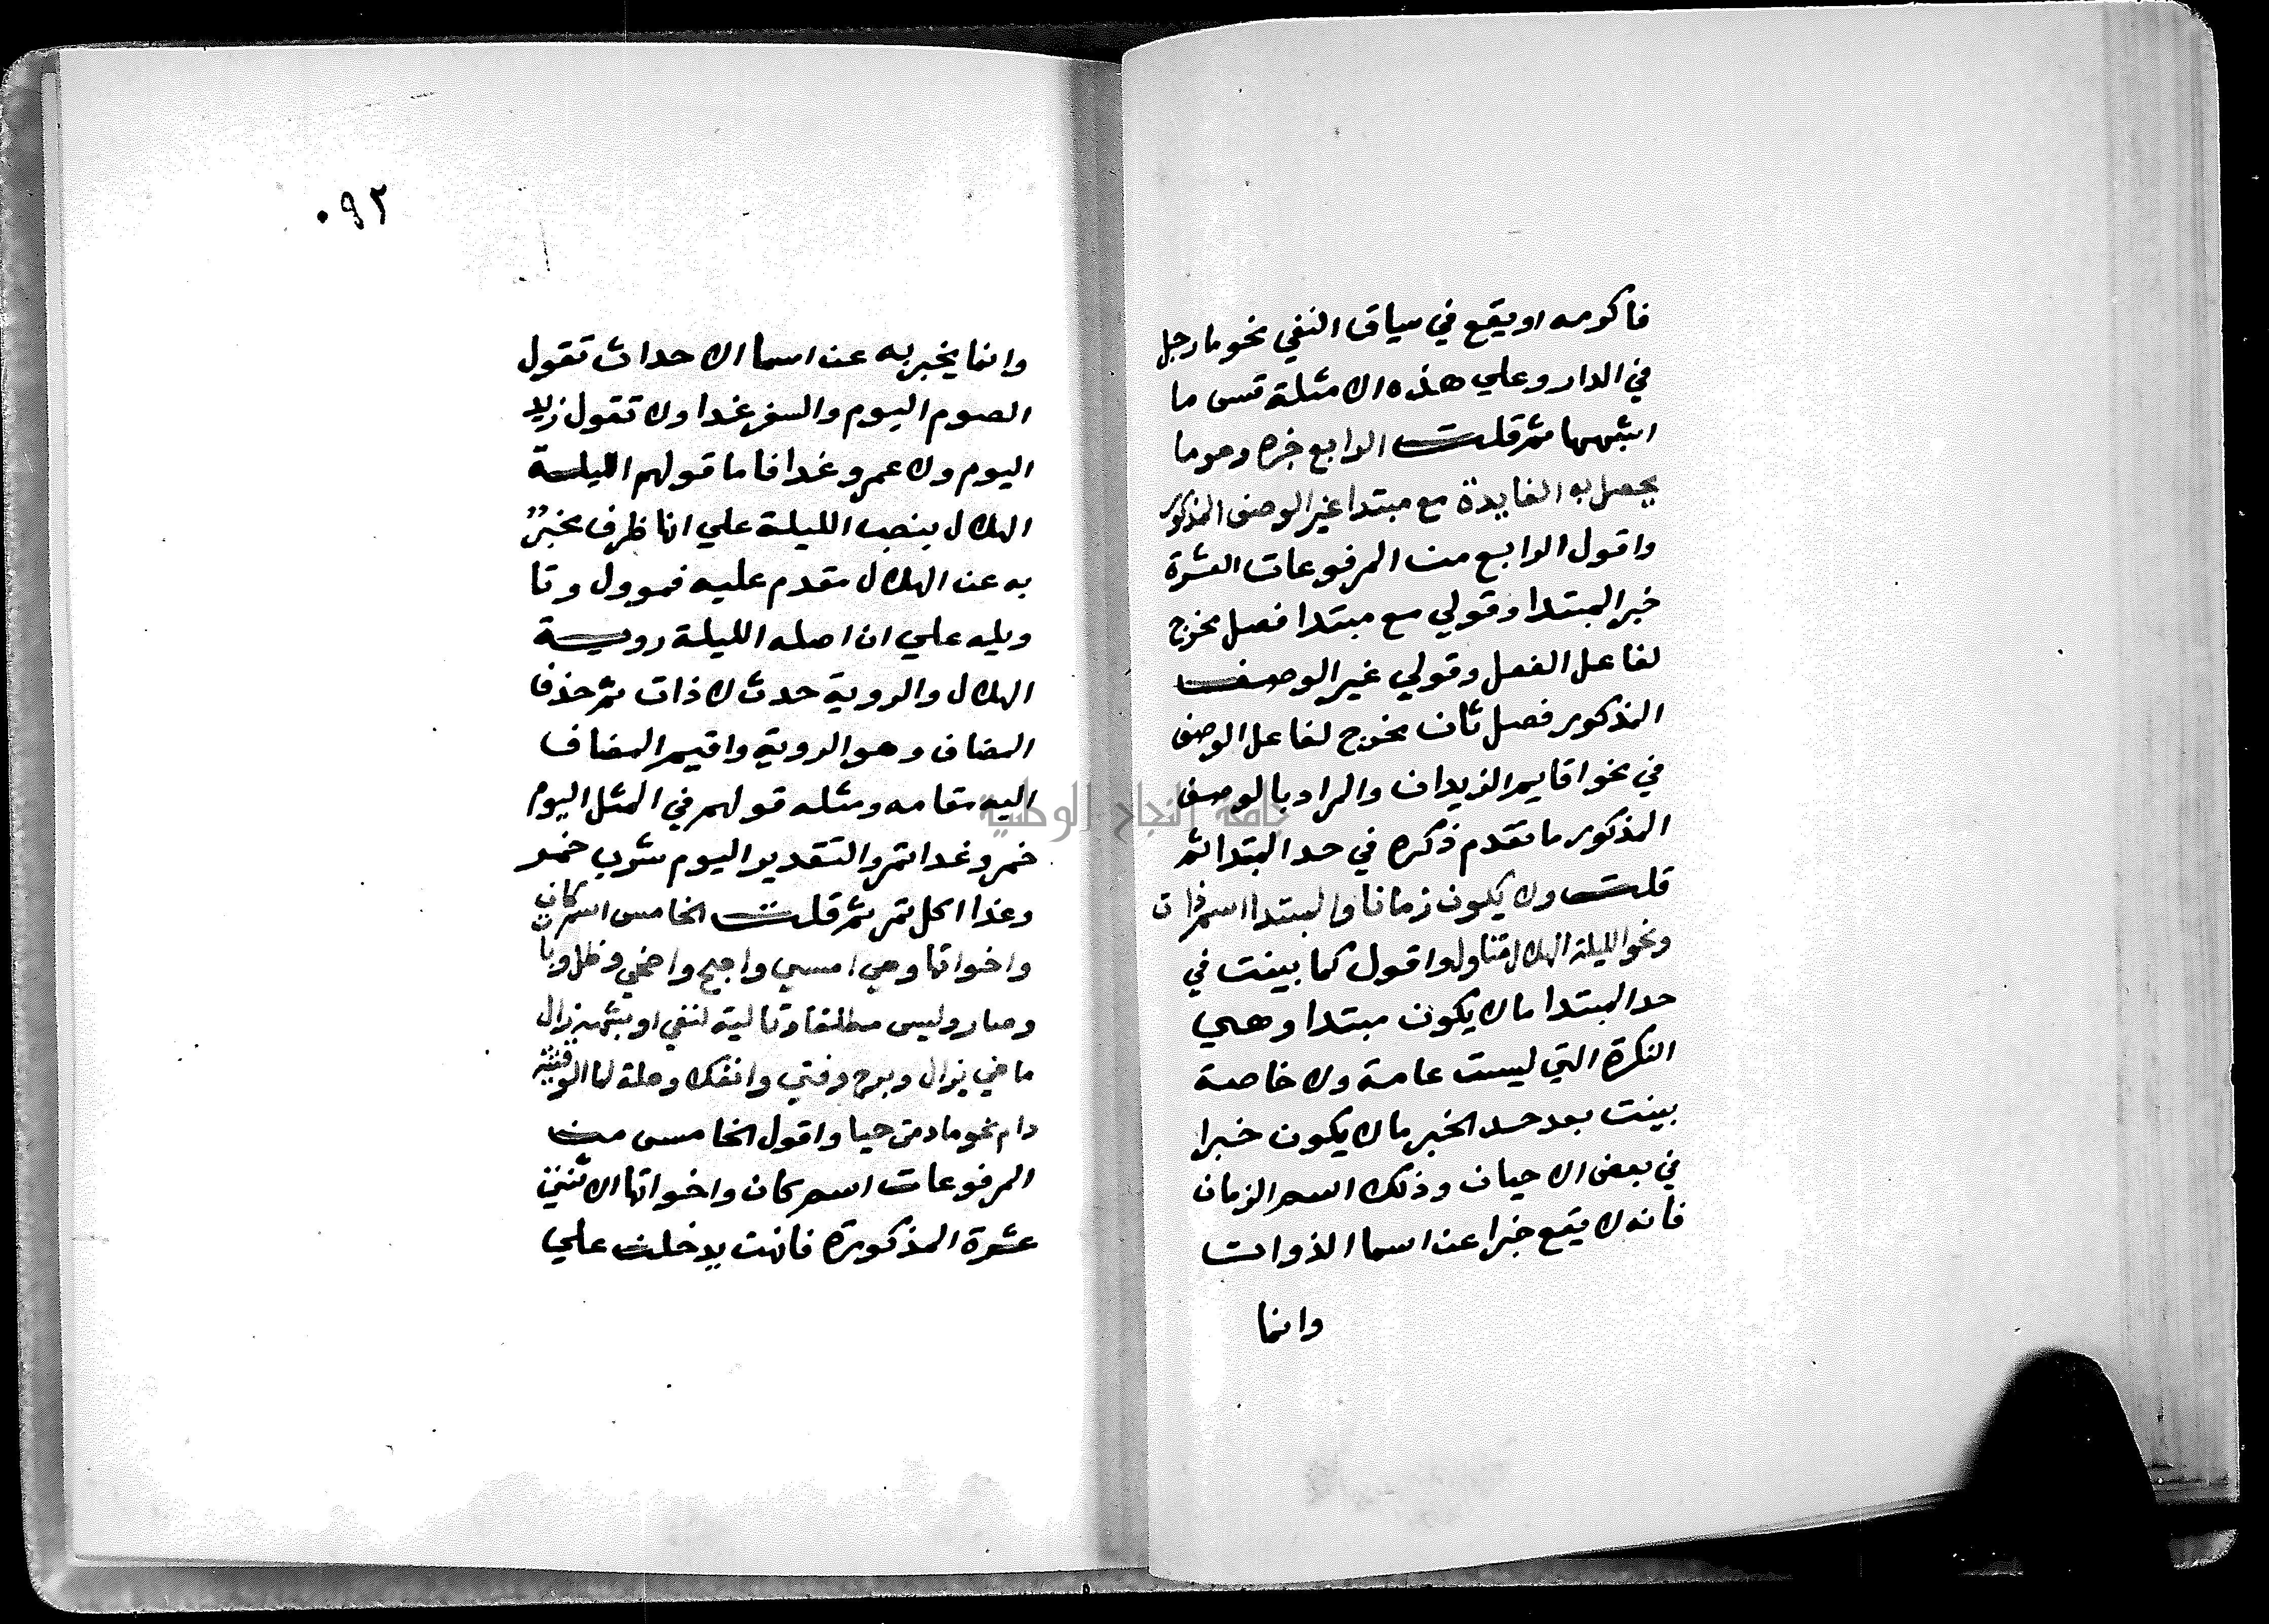 فاكرمه او يقع في سياق النفي نحو ما رجل
في الدار وعلي هذه الامثلة قس ما
اشبهها ثم قلت الرابع خبره وهو ما
يحصل به الفايدة مع مبتدا غير الوصف المذكور
واقول الرابع من المرفوعات العشرة
خبر المبتدا وقولي مع مبتدا فصل مخرج
لفاعل الفعل وقولي غير الوصف
المذكور فصل ثان مخرج لفاعل الوصف
في نحو اقايم الزيدان والمراد بالوصف
المذكور ما تقدم ذكره في حد المبتدا ثم
قلت ولا يكون زمانا والمبتدا اسم ذات
ونحو الليلة الهلال متناول واقول كما بينت في
حد المبتدا ما لا يكون مبتدا وهي
النكرة التي ليست عامة ولا خاصة
بينت بعد حد الخبر ما لا يكون خبرا
في بعض الاحيان وذلك اسم الزمان
فانه لا يقع خبرا عن اسما الذوات
وانما
٠٩٢
وانما يخبر به عن اسما الاحداث تقول
الصوم اليوم والسفر غدا ولا تقول زيد
اليوم ولا عمرو غدا فاما قولهم الليلة
الهلال بنصب الليلة علي انها ظرف مخبر
به عن الهلال مقدم عليه فموول وتا
ويله علي ان اصله الليلة روية
الهلال والروية حدث لا ذات ثم حذفا
المضاف وهو الروية واقيم المضاف
اليه مقامه ومثله قولهم في المثل اليوم
خمر وغدا تمر والتقدير اليوم شرب خمر
وغدا اكل تمر ثم قلت الخامس اسم كان
واخواتها وهي امسي واصبح واضحي وظل وبا
وصار وليس مطلقا وتالية لنفي او شبهه زال
ماضي يزال وبرح وفتي وانفك وصلة لما الوقتية
دام نحو ما دمت حيا واقول الخامس من
المرفوعات اسم كان واخواتها الاثنتي
عشرة المذكورة فانهن يدخلن علي
جامعة النجاح الوطنية